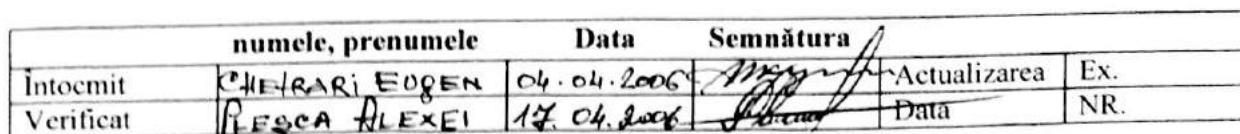 numele, prenumele Data Semnătura
Întocmit CHETRARI EUGEN 04.04.2006 Actualizarea Ex.
Verificat PLEȘCA ALEXEI 17.04.2006 Data NR.